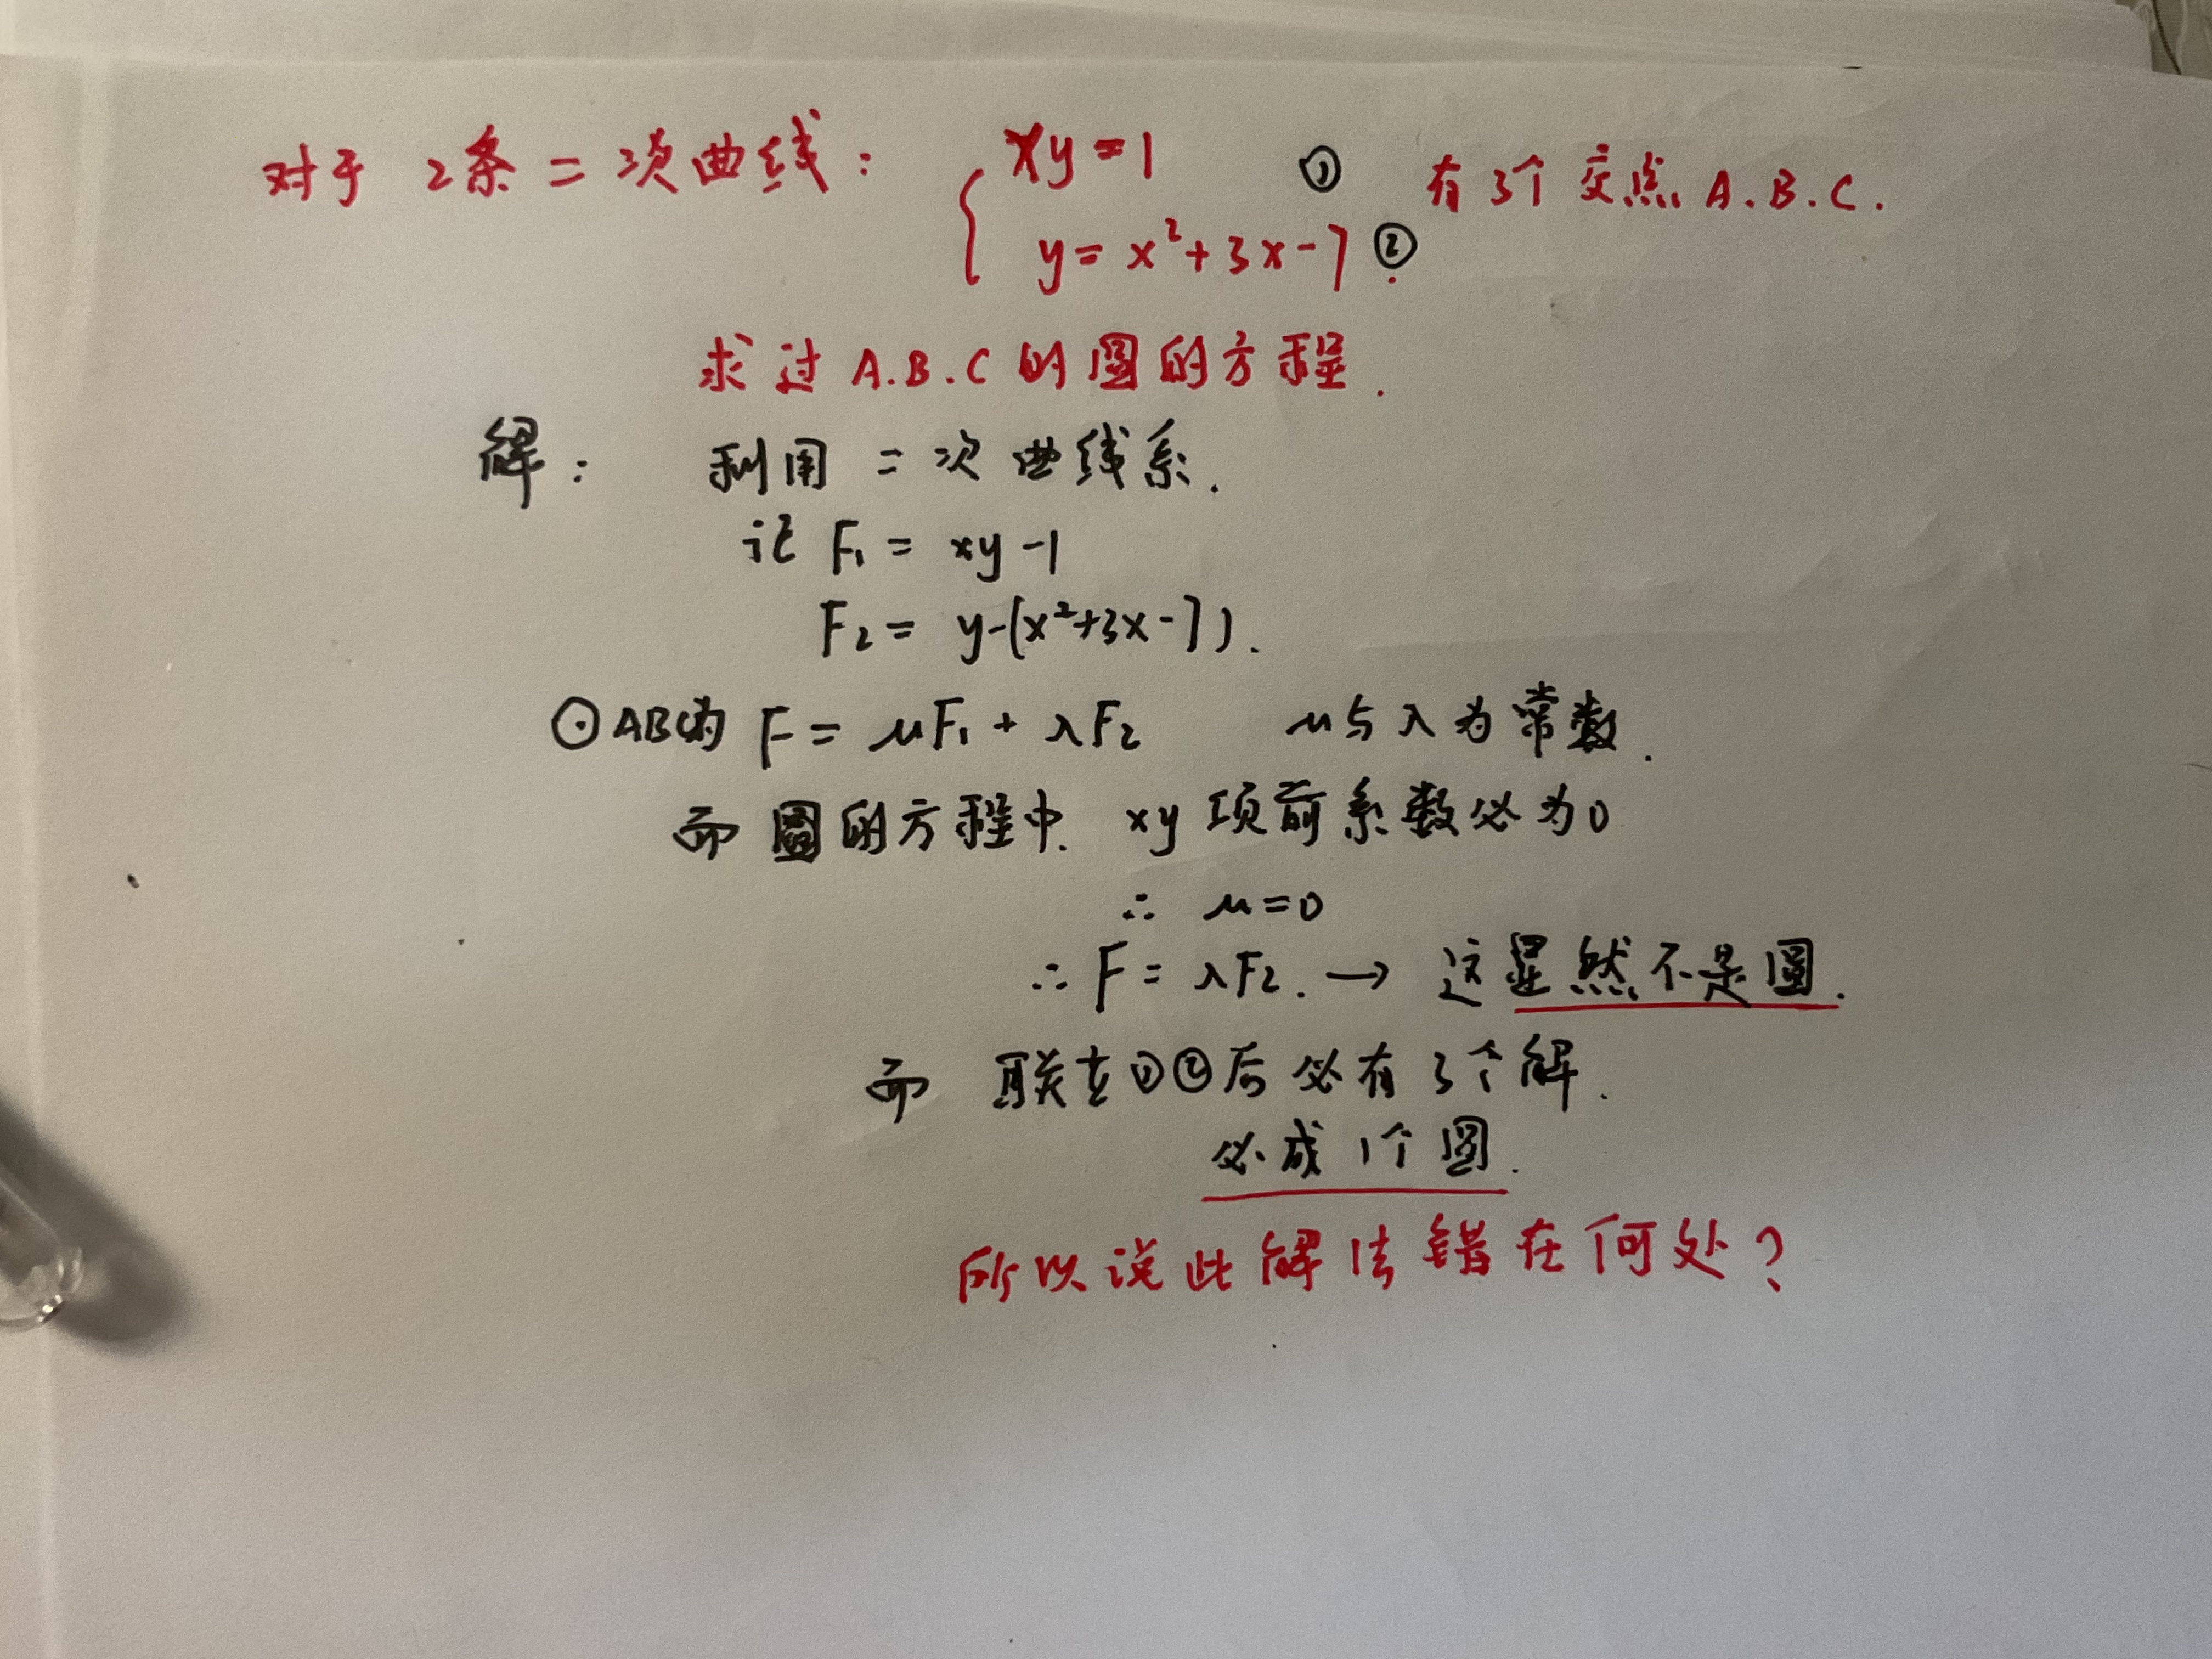 对于 2条二次曲线: { xy=1 ① 有3个交点 A.B.C.
y=x²+3x-7 ②.
求过 A.B.C 的圆的方程.
解: 利用二次曲线系.
记 F₁ = xy-1
F₂ = y-(x²+3x-7).
⊙ABC为 F = μF₁ + λF₂ μ与λ为常数.
而圆的方程中. xy 项前系数必为0
∴ μ=0
∴ F = λF₂. → 这显然不是圆.
而 联立①②后必有3个解.
必成1个圆.
所以说此解法错在何处?